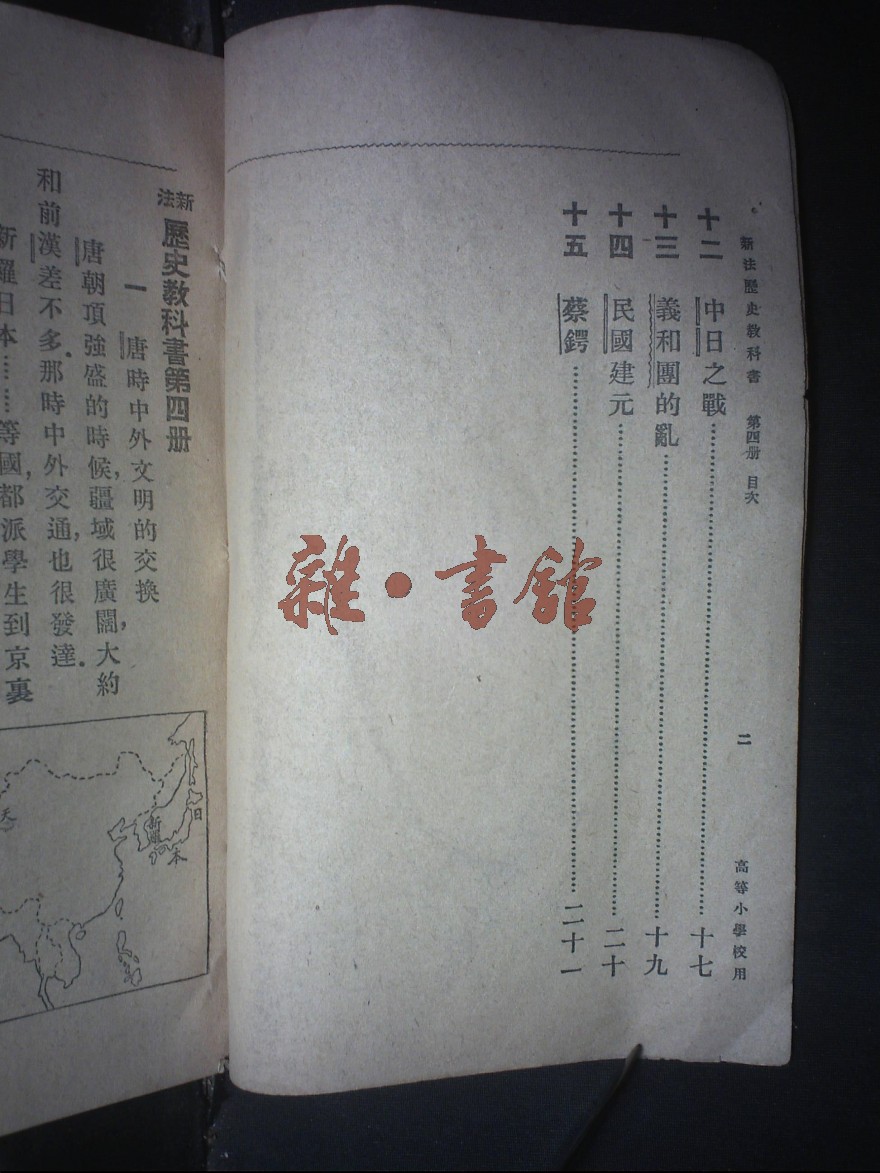 新法歷史教科書 第四册 目次 二 高等小學校用
十二 中日之戰……十七
十三 義和團的亂……十九
十四 民國建元……二十
十五 蔡鍔……二十一
雜·書館
新法歷史教科書第四册
一 唐時中外文明的交換
唐朝頂強盛的時候,疆域很廣闊,大約
和前漢差不多.那時中外交通,也很發達.
新羅日本……等國,都派學生到京裏
日
本
新羅
天